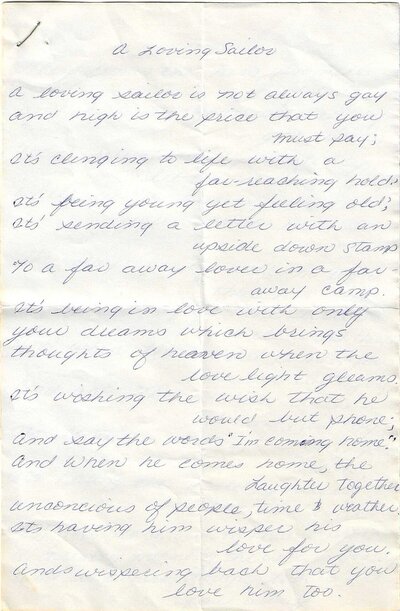 A Loving Sailor
A loving sailor is not always gay
and high is the price that you
must pay;
It's clinging to life with a
far-reaching hold;
It's being young yet feeling old;
It's sending a letter with an
upside down stamp
To a far away lover in a far-
away camp.
It's being in love with only
your dreams which brings
thoughts of heaven when the
love light gleams.
It's wishing the wish that he
would but phone;
And say the words "I'm coming home."
And when he comes home, the
Laughter together
unconcious of people, time & weather.
Its having him wisper his
love for you.
And wispering back that you
love him too.